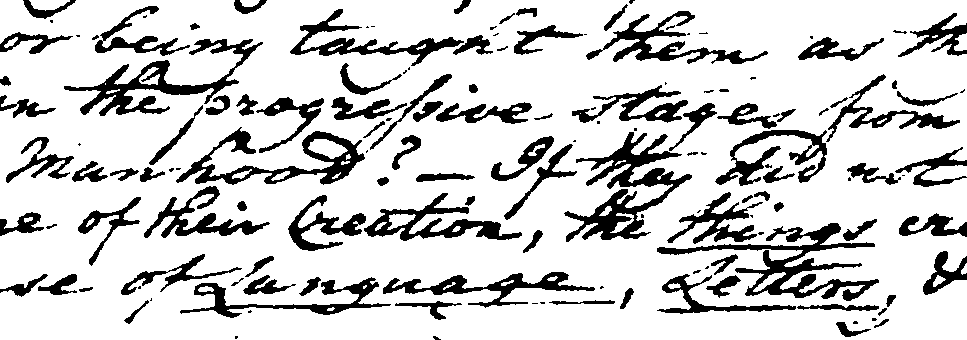 or being taught them as th
in the progreſsive stages from
Manhood? — If they did not
of their Creation, the things
of Language, Letters, &